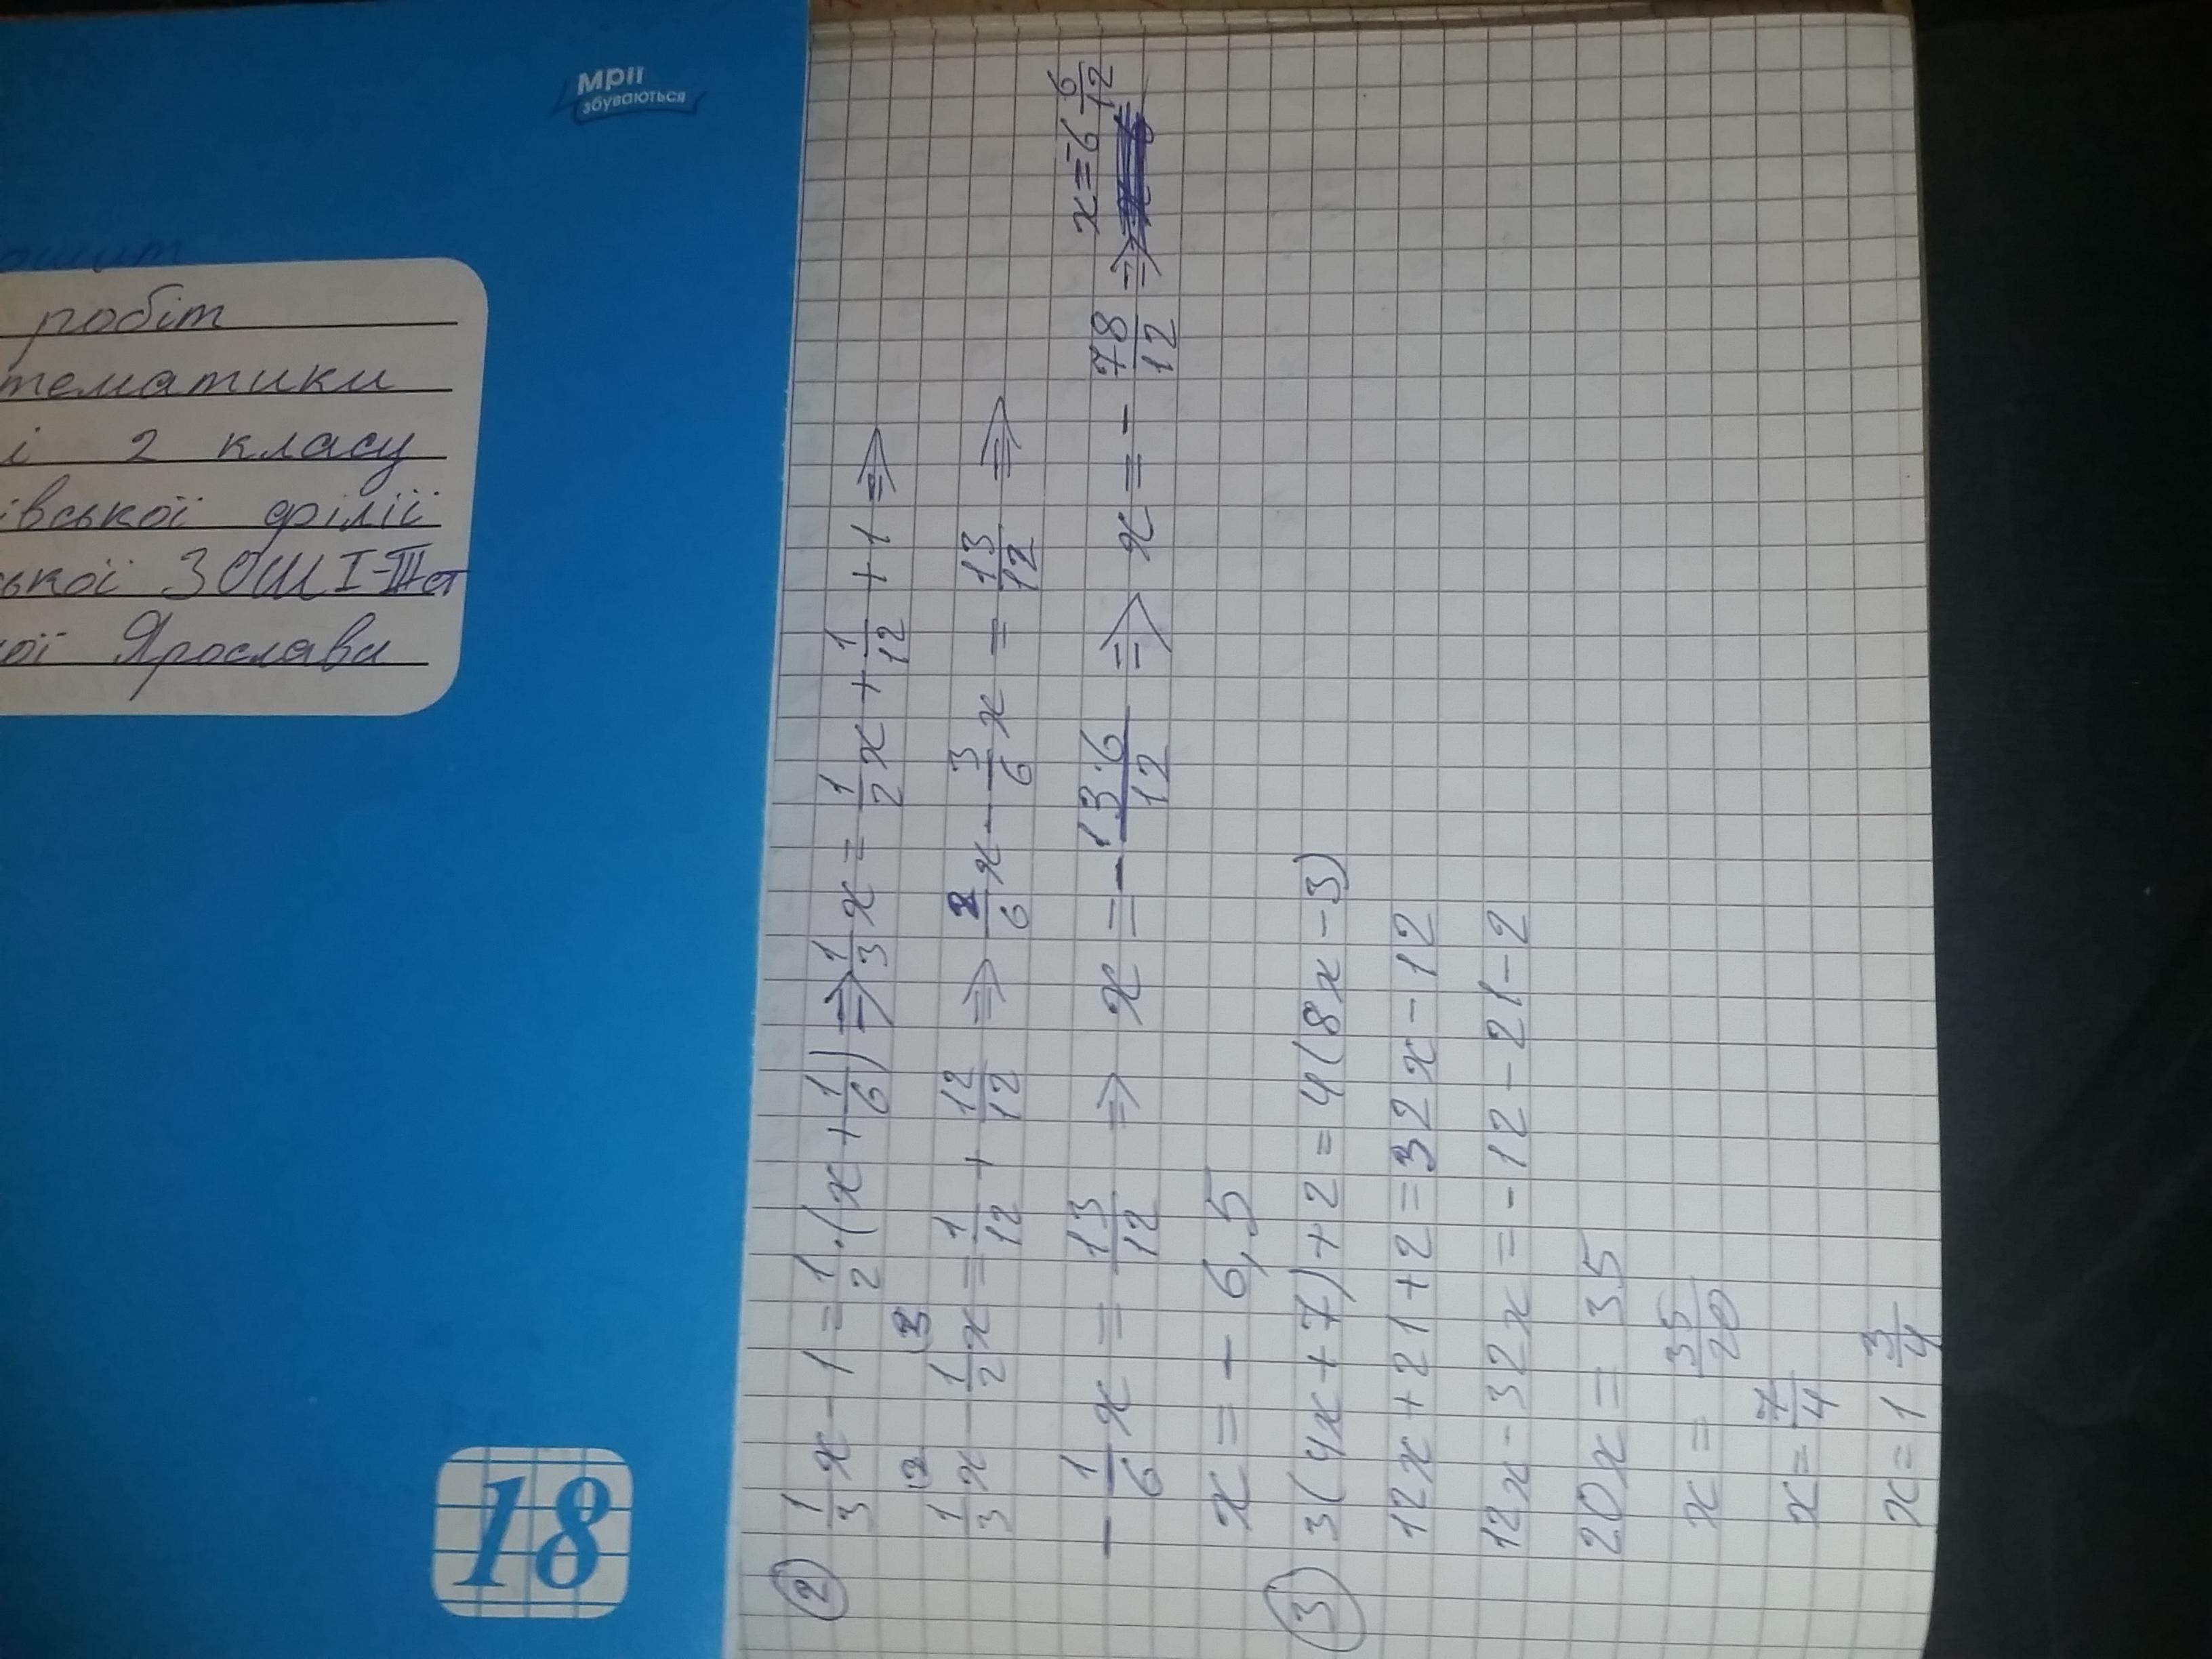 Мрії
збуваються
робіт
тематики
і 2 класу
івської філії
ської ЗОШ І-ІІІ ст
ої Ярослави
18
② 1/3 x - 1 = 1/2 · (x + 1/6) ⇒ 1/3 x = 1/2 x + 1/12 + 1 ⇒
1/3 x - 1/2 x = 1/12 + 12/12 ⇒ 2/6 x - 3/6 x = 13/12 ⇒
- 1/6 x = 13/12 ⇒ x = - 13·6/12 ⇒ x = - 78/12 ⇒ x = -6 6/12
x = - 6,5
③ 3(4x + 7) + 2 = 4(8x - 3)
12x + 21 + 2 = 32x - 12
12x - 32x = - 12 - 21 - 2
20x = 35
x = 35/20
x = 7/4
x = 1 3/4